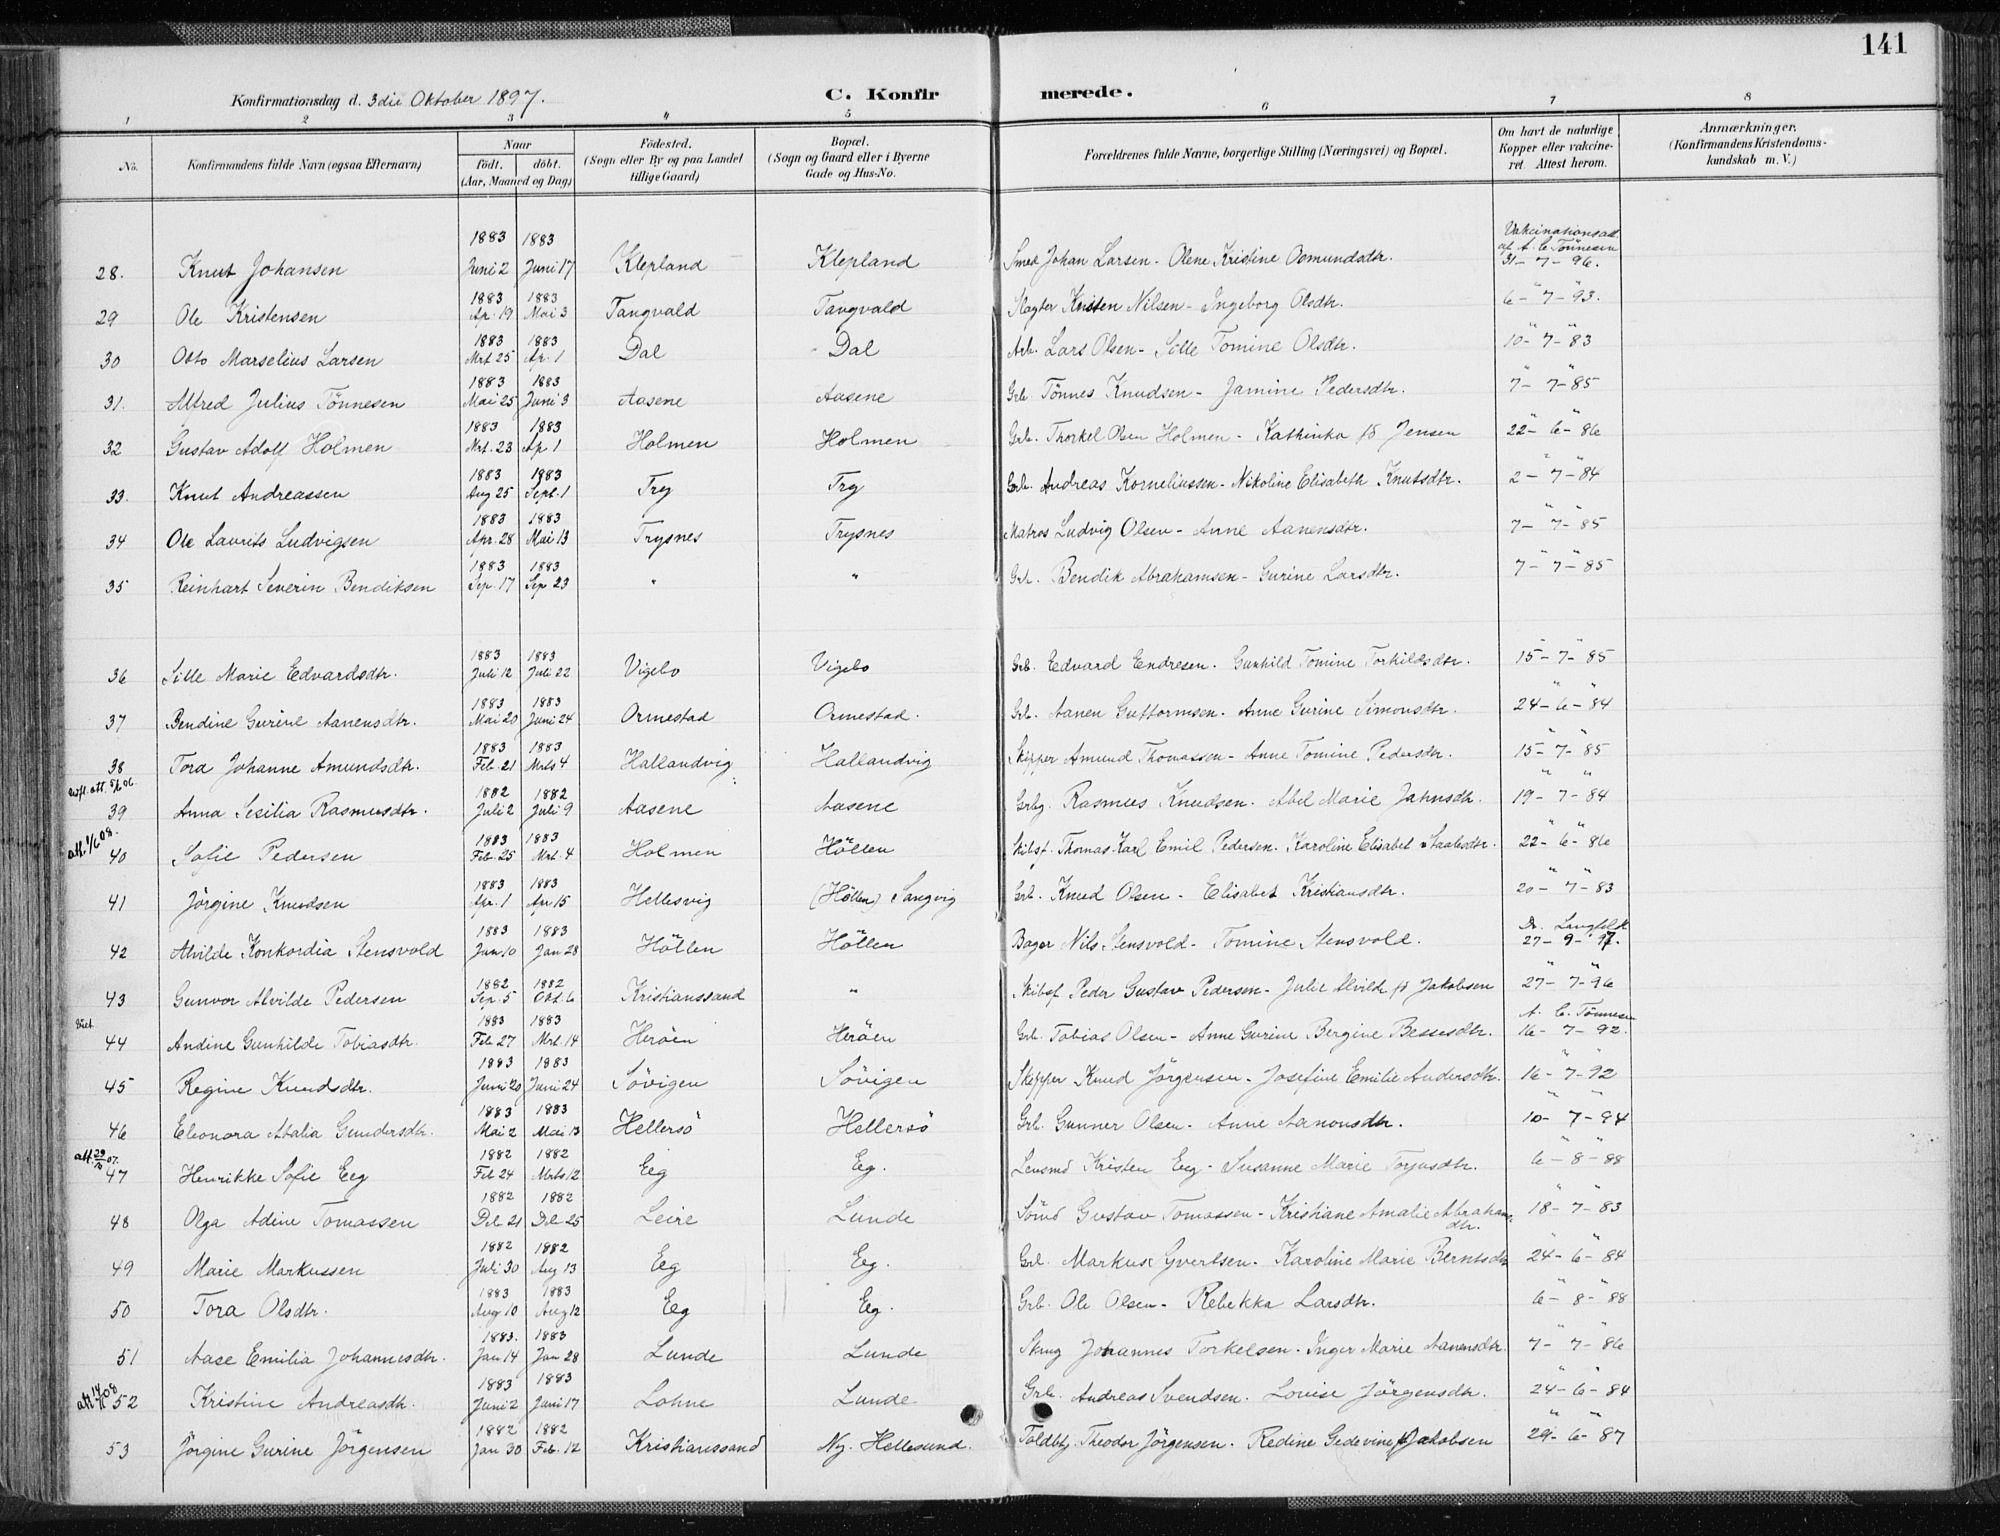 141
Konfirmationsdag d. 3die Oktober 1897. C. Konfirmerede.
1 2 3 4 5 6 7 8
No. Konfirmandens fulde Navn (ogsaa Efternavn) Naar födt. döbt. (Aar, Maaned og Dag) Födested. (Sogn eller By og paa Landet tillige Gaard) Bopæl. (Sogn og Gaard eller i Byerne Gade og Hus-No. Forældrenes fulde Navne, borgerlige Stilling (Næringsvei) og Bopæl. Om havt de naturlige Kopper eller vakcineret. Attest herom. Anmærkninger. (Konfirmandens Kristendomskundskab m. V.)
28. Knut Johansen 1883 Juni 2 1883 Juni 17 Klepland Klepland Smed Johan Larsen - Olene Kristine Osmundsdtr. Vakcinationsatt af A. C. Tönnesen 31-7-96.
29 Ole Kristensen 1883 Ap. 19 1883 Mai 3 Tangvald Tangvald Slagter Kristen Nilsen - Ingeborg Olsdtr. 6-"7-"93.
30 Otto Marselius Larsen 1883 Mrt. 25 1883 Ap. 1 Dal Dal Arb. Lars Olsen - Sille Tomine Olsdtr. 10-"7-"83
31. Alfred Julius Tönnesen 1883 Mai 25 1883 Juni 3 Aasene Aasene Grb. Tönnes Knudsen - Jamine Pedersdtr. 7-"7-"85
32 Gustav Adolf Holmen 1883 Mrt. 23 1883 Ap 1 Holmen Holmen Grb. Thorkel Olsen Holmen - Kathinka fö Jensen 22-"6-"86
33. Knut Andreassen 1883 Aug 25 1883 Sept. 1 Try Try Grb. Andreas Korneliussen - Nikoline Elisabeth Knutsdtr. 2-"7-"84
34 Ole Laurits Ludvigsen 1883 Apr. 28 1883 Mai 13 Trysnes Trysnes Matros Ludvig Olsen - Anne Aanensdtr. 7-"7-"85
35 Reinhart Severin Bendiksen 1883 Sep. 17 1883 Sep 23 " " Grb. Bendik Abrahamsen - Gurine Larsdtr. 7-"7-"85
36 Sille Marie Edvardsdtr. 1883 Juli 12 1883 Juli 22 Vigebo Vigebo Grb. Edvard Endresen. Gunhild Tomine Torkildsdtr. 15-"7-"85
37 Bendine Gurine Aanensdtr. 1883 Mai 20 1883 Juni 24 Ormestad Ormestad. Grb. Aanen Guttormsen. Anne Gurine Simonsdtr. 24-"6-"84
38 Tora Johanne Amundsdtr. 1883 Feb. 21 1883 Mrts 4 Hallandvig Hallandvig Skipper Amund Thomassen - Anne Tomine Pedersdtr. 15-"7-"85
39 Anna Sesilia Rasmusdtr. 1882 Juli 2 1882 Juli 9 Aasene Aasene Grbg. Rasmus Knudsen. Abel Marie Jahnsdtr. 19-"7-"84
att. 1/6 08.
40 Sofie Pedersen 1883 Feb. 25 1883 Mrt. 4 Holmen Höllen Skibsf. Thomas Karl Emil Pedersen. Karoline Elisabet Saalesdtr. 22-"6-"86
41 Jörgine Knudsen 1883 Apr. 1 1883 Apr 15 Hellesvig (Höllen) Langvig Grb. Knud Olsen - Elisabet Kristiansdtr. 20-"7-"83
42 Alvilde Konkordia Stensvold 1883 Jan. 10 1883 Jan 28 Höllen Höllen Bager Nils Stensvold - Tomine Stensvold. Dr. Langfeldt 27-9-97.
43 Gunvor Alvilde Pedersen 1882 Sep. 5 1882 Okt. 6 Kristianssand " Skibsf Peder Gustav Pedersen - Julie Alvilde fö Jakobsen 27-"7-"96
44 Andine Gunhilde Tobiasdtr. 1883 Feb 27 1883 Mrt. 14 Heröen Heröen Grb. Tobias Olsen - Anne Gurine Bergine Bessesdtr. A. C. Tönnesen 16-7-92.
45 Regine Knudsdtr. 1883 Juni 20 1883 Juni 24 Sövigen Sövigen Skipper Knud Jörgensen - Josefine Emilie Andersdtr. 16-"7-"92
46 Eleonora Atalia Gundersdtr. 1883 Mai 2 1883 Mai 13 Hellersö Hellersö Grb. Gunner Olsen - Anne Aanonsdtr. 10-"7-"94
att. 29/10 07.
47 Henrikke Sofie Eeg 1882 Feb 24 1882 Mrts 12 Eeg Eeg. Lensmd Kristen Eeg - Susanne Marie Torjusdtr. 6-"8-"88
48 Olga Adine Tomassen 1882 Dec 21 1882 Dec 25 Leire Lunde Sömd Gustav Tomassen - Kristiane Amalie Abrahamsdtr. 18-"7-"83
49 Marie Markussen 1882 Juli 30 1882 Aug 13 Eeg Eeg. Grb. Markus Gvertsen. Karoline Marie Berntsdtr 24-"6-"84
50 Tora Olsdtr. 1883 Aug 10 1883 Aug 12 Eeg Eeg. Grb. Ole Olsen - Rebekka Larsdtr. 6-"8-"88
51 Aase Emilia Johannesdtr. 1883. Jan 14 1883 Jan 28 Lunde Lunde Johannes Torkelsen. Inger Marie Aanensdtr. 7-"7-"86
52 Kristine Andreasdtr. 1883 Juni 2 1883 Juni 17 Lohne Lunde Grb. Andreas Svendsen. Lovise Jörgensdtr. 24-"6-"84
53 Jörgine Gurine Jörgensen 1882 Jan 30 1882 Feb. 12 Kristianssand Ny. Hellesund. Toldbtj. Theodor Jörgensen. Redine Gedevine fö Jakobsen 29-"6-"87